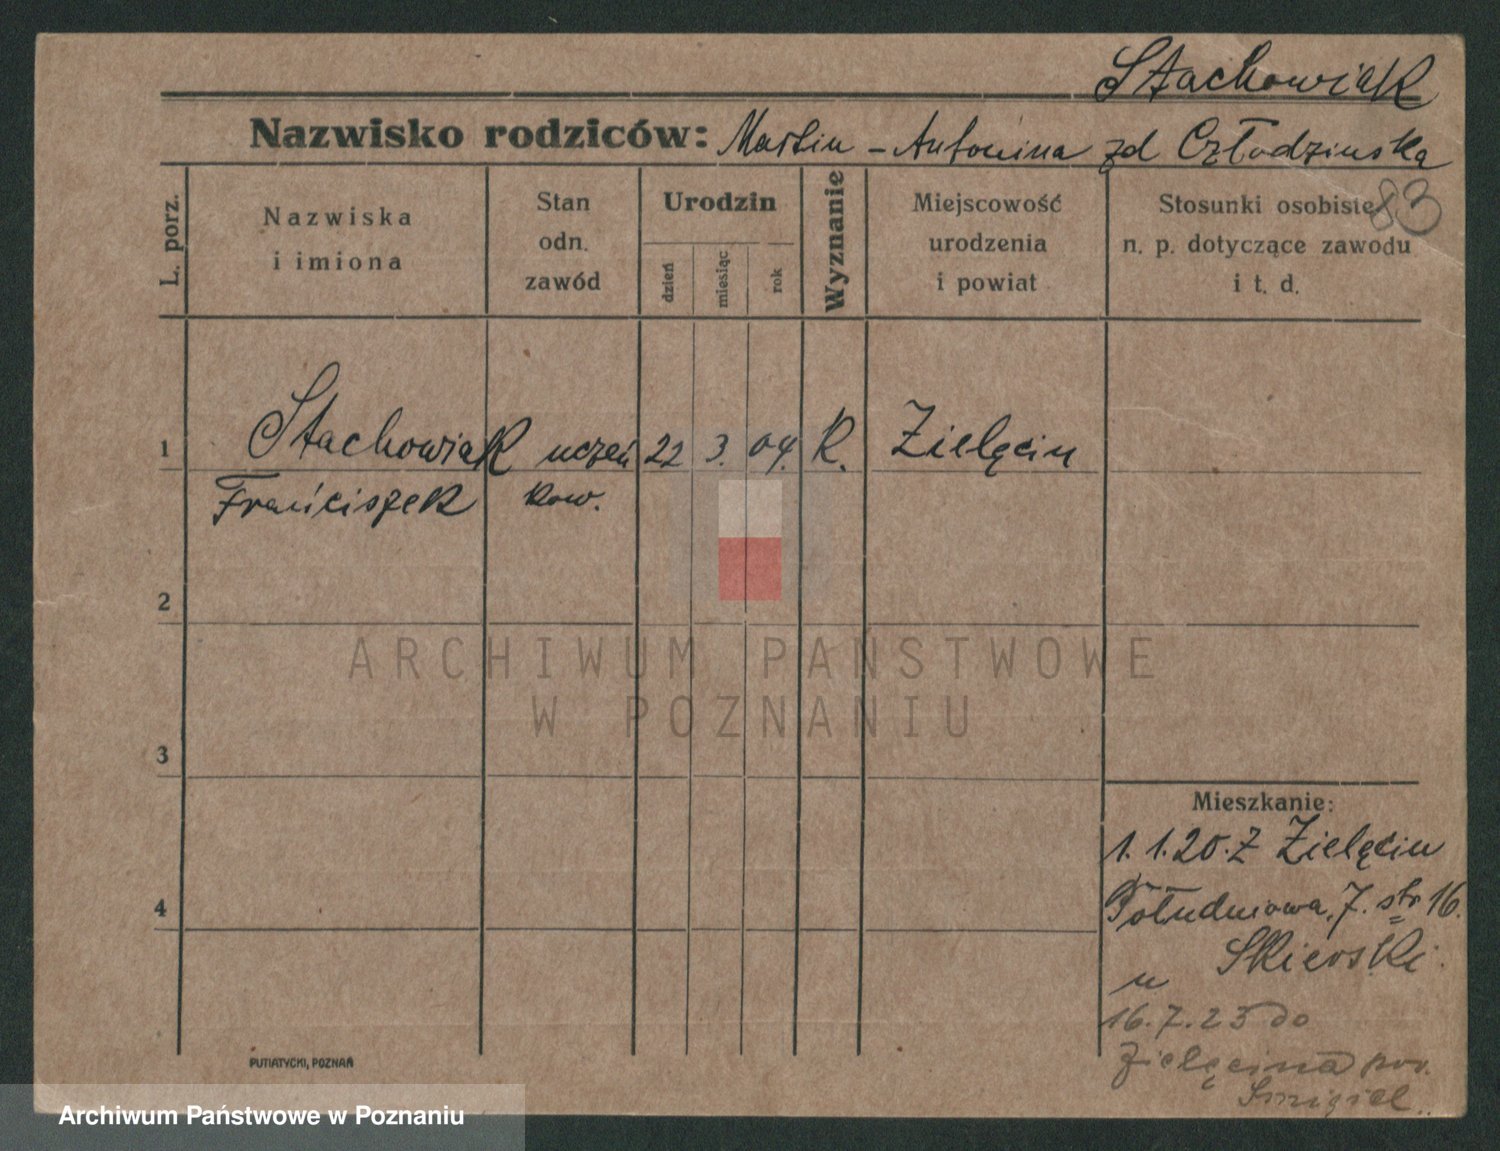 Stachowiak
Nazwisko rodziców: Martin - Antonina zd Człodzinska
83
L. porz.
Nazwiska
i imiona
Stan
odn.
zawód
Urodzin
dzień
miesiąc
rok
Wyznanie
Miejscowość
urodzenia
i powiat
Stosunki osobiste
n. p. dotyczące zawodu
i t. d.
1 Stachowiak uczeń 22 3. 04. R. Zielęcin
Franciszek kow.
2
3
4
Mieszkanie:
1. 1. 20. Z Zielęcin
Południowa, 7. str 16.
u Skierski.
16.7.23 do
Zielęcina pow.
Smigiel..
PUTIATYCKI, POZNAŃ
ARCHIWUM PAŃSTWOWE
W POZNANIU
Archiwum Państwowe w Poznaniu